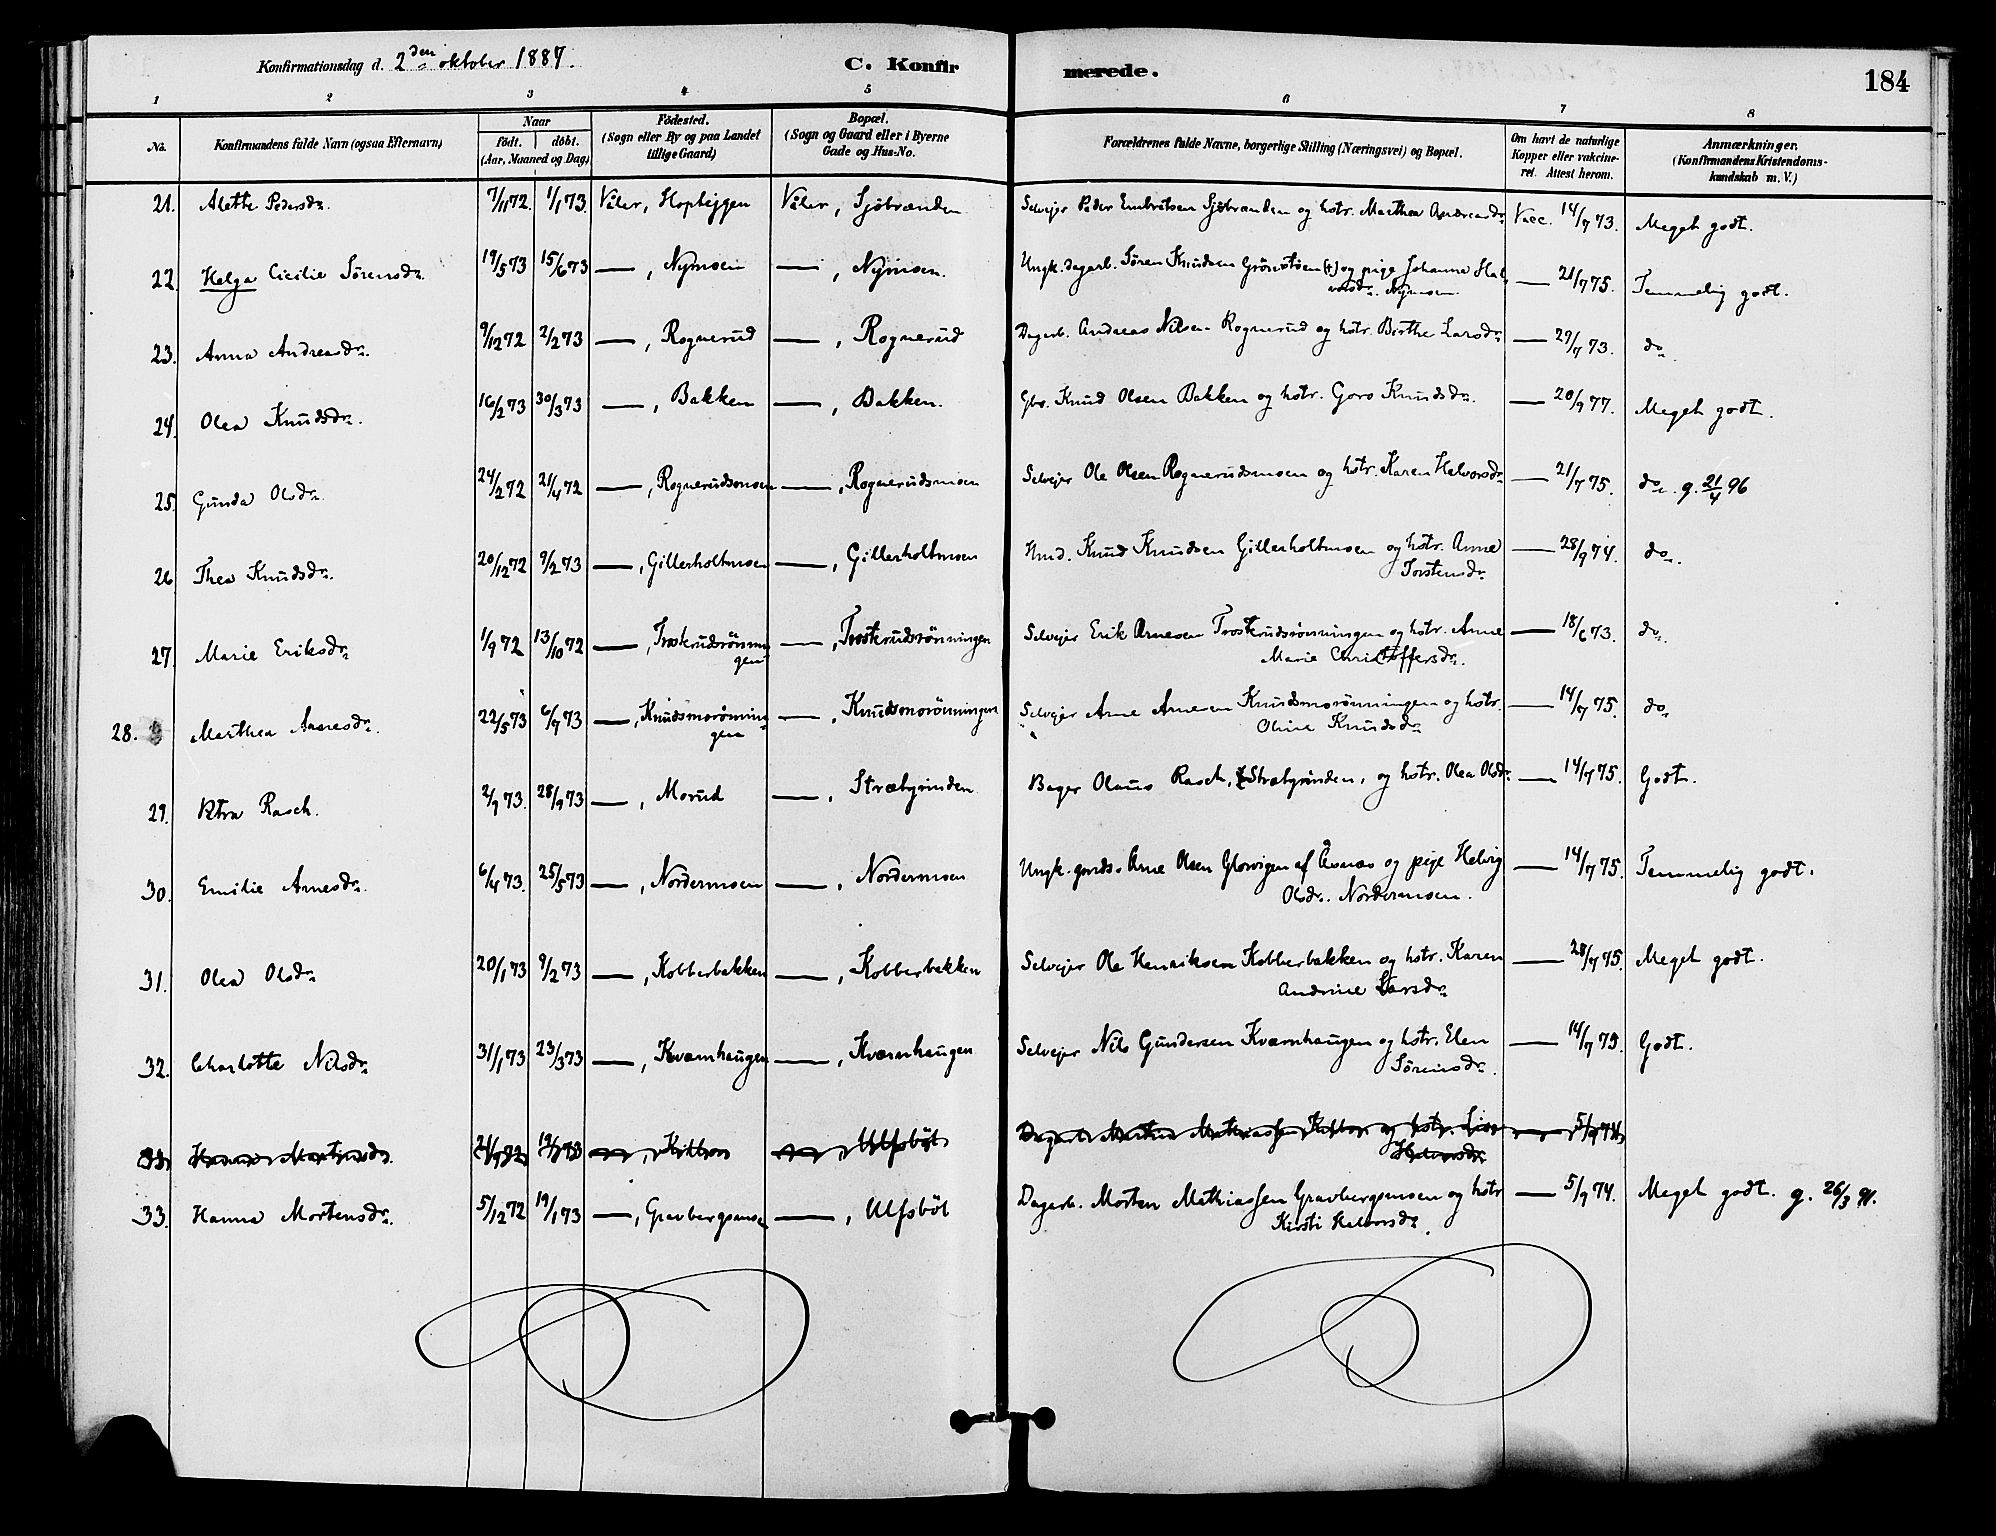 Konfirmationsdag d. 2den oktober 1887.
C. Konfirmerede.
184
1 2 3 4 5 6 7 8
No. Konfirmandens fulde Navn (ogsaa Efternavn) Naar födt. döbt. (Aar, Maaned og Dag) Födested. (Sogn eller By og paa Landet tillige Gaard) Bopæl. (Sogn og Gaard eller i Byerne Gade og Hus-No. Forældrenes fulde Navne, borgerlige Stilling (Næringsvei) og Bopæl. Om havt de naturlige Kopper eller vakcineret. Attest herom. Anmærkninger. (Konfirmandens Kristendomskundskab m. V.)
21. Alette Pedersdr. 7/11 72. 1/1 73. Våler, Haptejgen Våler, Sjöbranden Selvejer Peder Embretsen Sjöbranden og hstr. Marthea Andreasdr. Vacc. 14/7 73. Meget godt.
22. Helga Cicilie Sørensdr. 19/5 73 15/6 73 — , Nymoen — , Nymoen. Ungk. dagarb. Søren Knudsen (+) og pige Johanne Hal-
vorsdr. Nymoen — 21/7 75. Temmelig godt.
23. Anna Andreasdr. 9/12 72 2/2 73 — , Rognerud — , Rognerud Dagarb. Andreas Nilsen Rognerud og hstr. Berthe Larsdr. — 29/7 73. do.
24. Olea Knudsdr. 16/2 73 30/3 73 — , Bakken — , Bakken. Gbr. Knud Olsen Bakken og hstr. Goro Knudsdr. — 20/9 77. Meget godt.
25. Gunda Olsdr. 24/2 72 21/4 72 — , Rognerudsmoen — , Rognerudsmoen Selvejer Ole Olsen Rognerudsmoen og hstr. Karen Halvorsdr. — 21/7 75. do. g. 21/4 96
26 Thea Knudsdr. 20/12 72 9/2 73 — , Gillerholtmoen — , Gillerholtmoen Hmd. Knud Knudsen Gillerholtmoen og hstr. Anne
Torstensdr. — 28/9 74. do.
27. Marie Eriksdr. 1/9 72 13/10 72 — , Troskerudsrönnin-
gen — , Trostkrudsrönningen Selvejer Erik Arnesen Trostkrudsrönningen og hstr. Anne
Marie Christoffersdr. — 18/6 73. do.
28. Marthea Arnesdr. 22/5 73 6/7 73 — , Knudsmorönnin-
gen — , Knudsmorönningen Selvejer Arne Arnesen Knudsmorönningen og hstr.
Oline Knudsdr. — 14/7 75. do
29. Petra Rasch. 2/9 73. 28/9 73 — , Morud — , Strætgrinden Bager Olaus Rasch, Strætgrinden, og hstr. Olea Olsdr. — 14/7 75. Godt.
30. Emilie Arnesdr. 6/4 73. 25/5 73 — , Nordermoen — , Nordermoen Ungk. gårds. Arne Olsen af Åsnæs og pige Helvig
Olsdr. Nordermoen. — 14/7 75. Temmelig godt.
31. Olea Olsdr. 20/1 73 9/2 73 — , Kobberbakken — , Kobberbakken Selvejer Ole Henriksen Kobberbakken og hstr. Karen
Andrine Larsdr. — 28/7 75. Meget godt.
32. Charlotte Nilsdr. 31/1 73 23/3 73 — , Kværnhaugen — , Kværnhaugen Selvejer Nils Gundersen Kværnhaugen og hstr. Elen
Sørensdr. — 14/7 75. Godt.
33. Hanna Mortensdr. 5/12 72 19/1 73 — , Gravbergsmoen — , Ulfsböl Dagarb. Morten Mathiassen Gravbergsmoen og hstr
Kirsti Halvorsdr. — 5/9 74. Meget godt. g. 26/3 91.